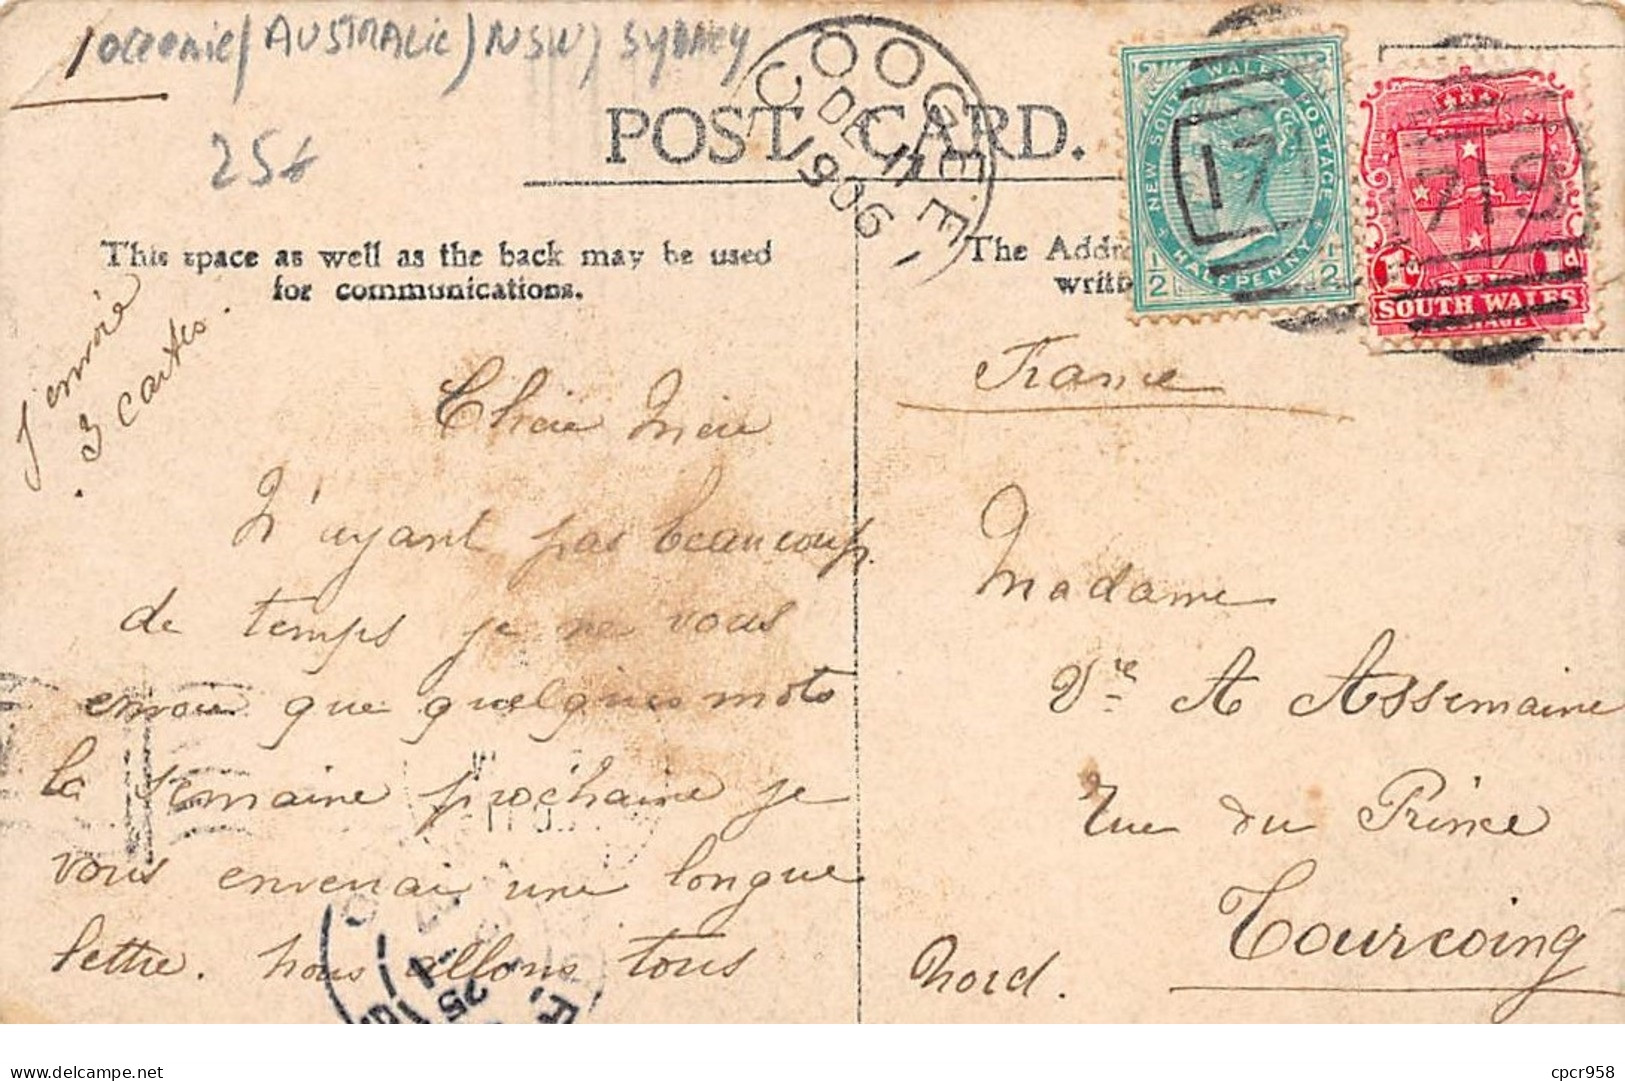 / OCEANIE / AUSTRALIE ) NSW ) SYDNEY
25f
POST CARD.
COOGEE
DE 11
1906
NEW SOUTH WALES POSTAGE
HALFPENNY
1/2 1/2
17
719
1d 1d
SOUTH WALES
This space as well as the back may be used
for communications.
The Addre
writt
J'envoie
3 cartes.
France
Chère Mère
N'ayant pas beaucoup
de temps je ne vous
envoie que quelques mots
la semaine prochaine je
vous enverrai une longue
lettre. nous allons tous
Madame
Vve A Assemaine
Rue du Prince
Tourcoing
Nord.
cpcr958